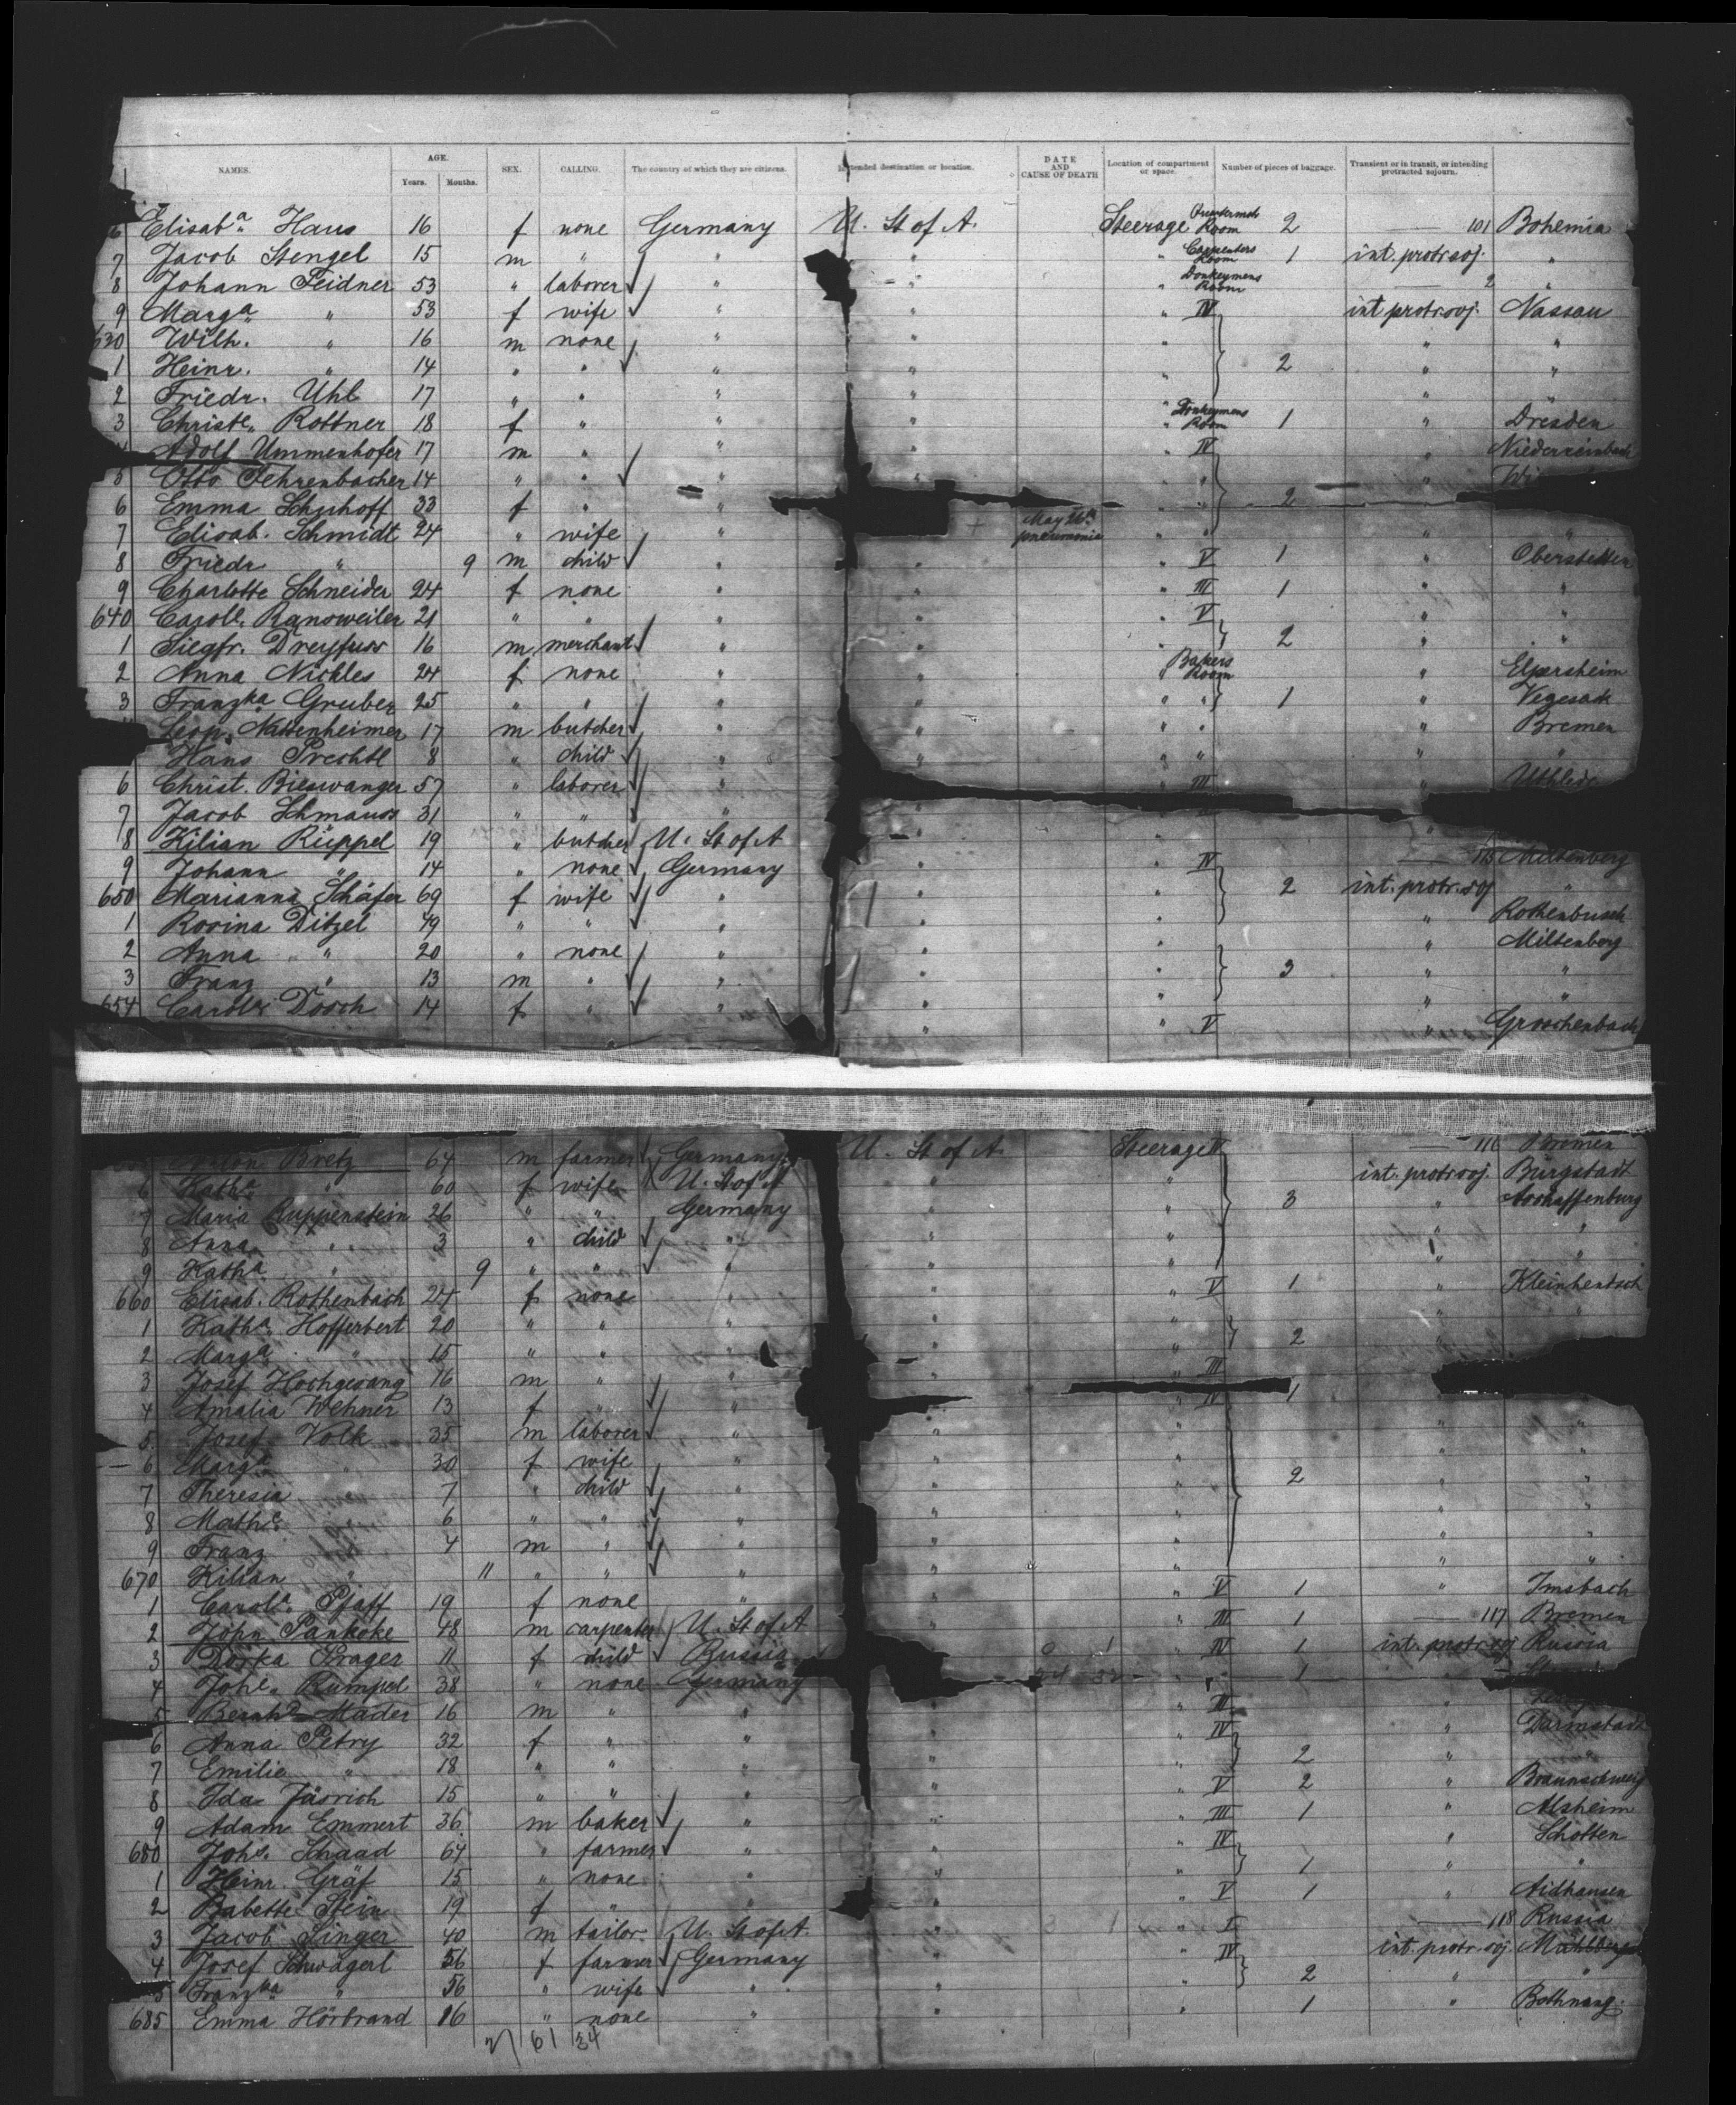 NAMES. AGE. Years. Months. SEX. CALLING. The country of which they are citizens. Intended destination or location. DATE AND CAUSE OF DEATH Location of compartment or space. Number of pieces of baggage. Transient or in transit, or intending protracted sojourn.
6 Elisabª Haus 16 f none Germany U. St of A. Steerage Room 2 101 Bohemia
7 Jacob Stengel 15 m " " " " Carpenters Room 1 int. protr. soj. "
8 Johann Feidner 53 " laborer " " " Donkeymens Room 2 "
9 Margª " 53 f wife " " " IV int protr. soj. Nassau
630 Wilh. " 16 m none " " " " "
1 Heinr. " 14 " " " " " 2 " "
2 Friedr. Uhl 17 " " " " "
3 Christe. Rottner 18 f " " " " Donkeymens Room 1 " Dresden
Adolf Ummenhofer 17 m " " " " IV "
5 Otto Fehrenbacher 14 " " " " "
6 Emma 33 f " " 2
7 Elisab. Schmidt 24 " wife " May pneumonia " " "
8 Friedr " 9 m child " " " V 1 " Oberstetten
9 Charlotte Schneider 24 f none " " " III 1 " "
640 Caroll. Ransweiler 21 " " " " " V " "
1 Siegfr. Dreyfuss 16 m merchant " " " 2 " "
2 Anna Nickles 24 f none " " " Bakers Room " Elpersheim
3 Franzka Gruber 25 " " " " " " 1 " Vegesack
Leop. Nattenheimer 17 m butcher " " " " " Bremen
Hans Prechtl 8 " child " " " " " "
6 Christ. Bieswanger 57 " laborer " " III "
7 Jacob Schmauss 31 " " " "
8 Kilian Rüppel 19 " butcher U. St of A " 115 Miltenberg
9 Johann " 14 " none Germany " " IV int. protr. soj "
650 Marianna Schäfer 69 f wife " " " 2 " Rothenbusch
1 Rosina Ditzel 49 " " " " " " Miltenberg
2 Anna " 20 " none " " " " "
3 Franz " 13 m " " " " 3 " "
654 Carole Dosch 14 f " " " " V " Groschenbach
Bretz 64 m farmer Germany U. St of A. Steerage 116 Bremen
6 Kathª " 60 f wife U. St of A " " int. protr soj. Bürgstadt
7 Maria Ruppenstein 26 " " Germany " " 3 " Aschaffenburg
8 Anna " 3 " child " " " " "
9 Kathª " 9 " " " " " " "
660 Elisab. Rothenbach 24 f none " " " V 1 " Kleinheubach
1 Kathª Hofferbert 20 " " " " " " "
2 Margª " 15 " " " " 2
3 Josef Hochgesang 16 m " " " III
4 Amalia Wehner 13 f " " " IV 1
5 Josef Volk 35 m laborer " " " " "
6 Margª " 30 f wife " " " " "
7 Theresia " 7 " child " " " 2 " "
8 Mathe. " 6 " " " " " " "
9 Franz " 4 m " " " " " "
670 Kilian " 11 " " " " " " "
1 Carolª Pfaff 19 f none " " " V 1 " Imsbach
2 John Pankoke 48 m carpenter U. St of A " " III 1 117 Bremen
3 Dorka Prager 11 f child Russia " IV 1 int. protr soj Russia
4 Johe. Rumpel 38 " none Germany 1
5 Bernhd Mader 16 m " " " " III "
6 Anna Petry 32 f " " " " IV " Darmstadt
7 Emilie " 18 " " " " " 2 " "
8 Ida Järrich 15 " " " " " V 2 " Braunschweig
9 Adam Emmert 36 m baker " " " III 1 " Alsheim
680 Johs. Schaad 64 " farmer " " " IV " Schotten
1 Heinr. Gräf 15 " none " " " 1 " "
2 Babette Stein 19 f " " " " V 1 " Aidhausen
3 Jacob Singer 40 m tailor U. St of A. " " I 118 Russia
4 Josef Schwägerl 56 f farmer Germany " " IV int. protr. soj.
5 Franzka " 56 " wife " " " 2 " "
685 Emma Hörbrand 16 " none " " " 1 " Bothnang.
27 61 34